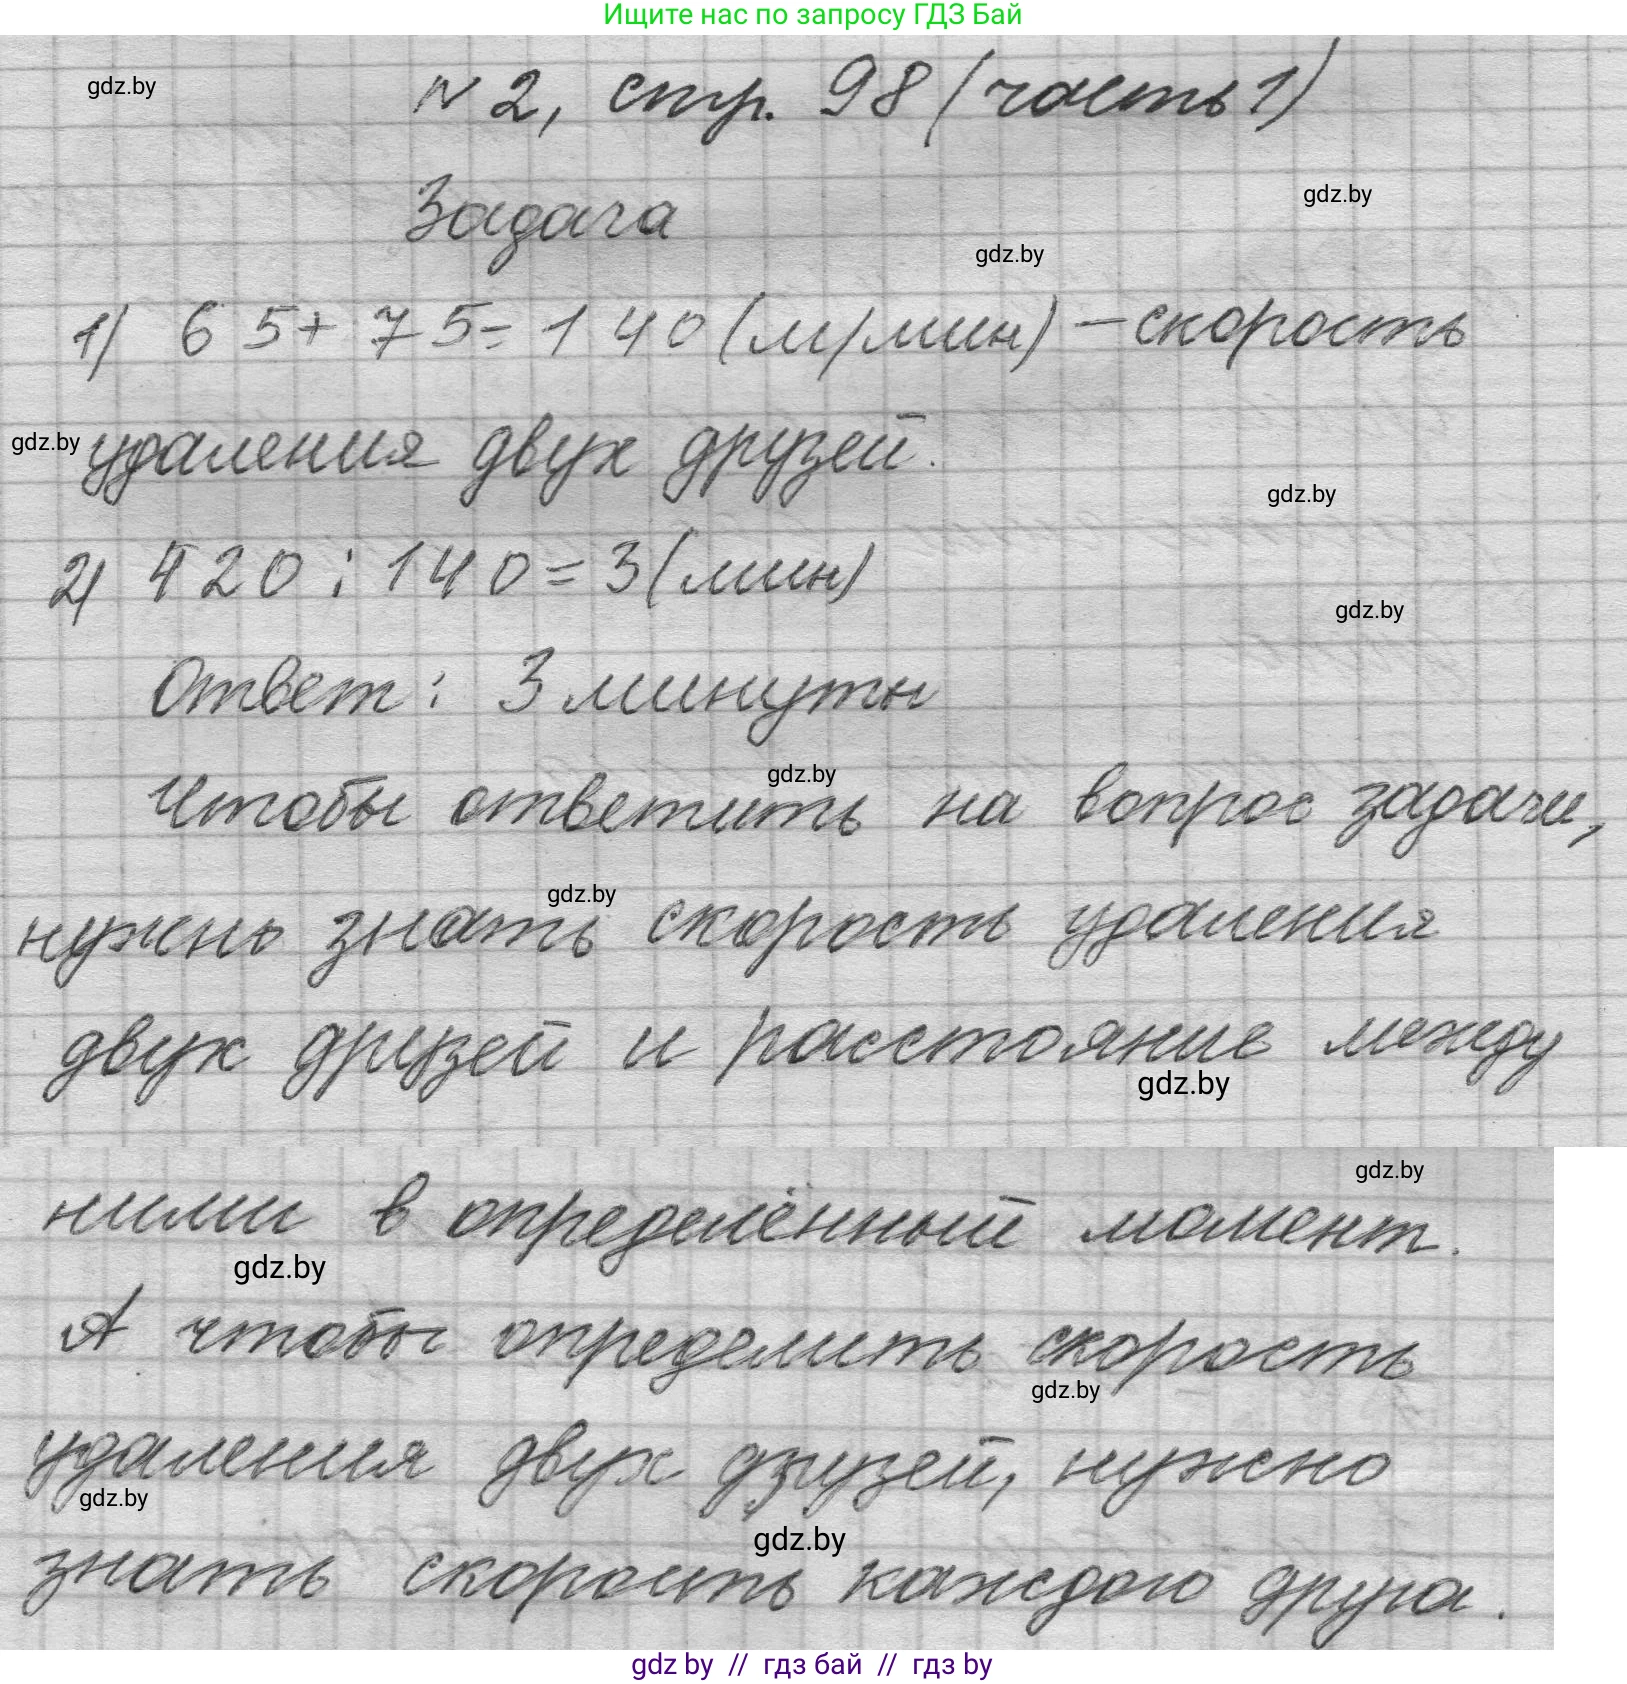 Ищите нас по запросу ГДЗ Бай
gdz.by
N 2, стр. 98 (часть 1)
gdz.by
Задача
gdz.by
1) 65+75=140 (м/мин) – скорость
gdz.by
удаления двух друзей.
gdz.by
2) 420:140=3(мин)
gdz.by
Ответ: 3 минуты
gdz.by
Чтобы ответить на вопрос задачи,
gdz.by
нужно знать скорость удаления
двух друзей и расстояние между
gdz.by
gdz.by
ними в определённый момент.
gdz.by
А чтобы определить скорость
gdz.by
удаления двух друзей, нужно
gdz.by
gdz.by
знать скорость каждого друга.
gdz by // гдз бай // гдз by